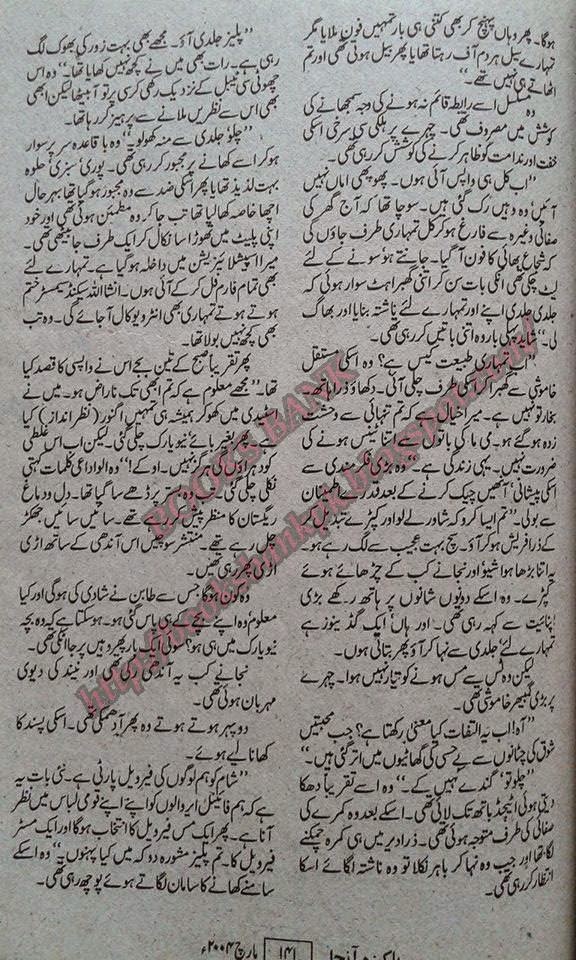 ہوگا۔ پھر وہاں پہنچ کر بھی کتنی ہی بار تمہیں فون ملایا مگر
تمہارے سیل ہر دم آف رہتا تھا یا پھر بیل ہوتی تھی اور تم
اٹھاتے ہی نہیں تھے۔"
وہ مسلسل اسے رابطہ قائم نہ ہونے کی وجہ سمجھانے کی
کوشش میں مصروف تھی۔ چہرے پر ہلکی سی سرخی اسکی
خفت اور ندامت کو ظاہر کرنے کی کوشش کر رہی تھی۔
"اب کل ہی واپس آئی ہوں۔ پھوپھی اماں نہیں
آئیں وہ وہیں رک گئی ہیں۔ سوچا تھا کہ آج گھر کی
صفائی وغیرہ سے فارغ ہو کر کل تمہاری طرف جاؤں کی
کہ شجاع بھائی کا فون آ گیا۔ جانتے ہو سونے کے لئے
لیٹ چکی تھی انکی بات سن کر اتنی گھبراہٹ سوار ہوئی کہ
جلدی جلدی اپنے اور تمہارے لئے ناشتہ بنایا اور بھاگ
لی۔" شاید پہلی بار وہ اتنی باتیں کر رہی تھی۔
"اب تمہاری طبیعت کیسی ہے؟ وہ اسکی مستقل
خاموشی سے گھبرا کر اسکی طرف چلی آئی۔ دکھاؤ ذرا ماتھا۔
بخار تو نہیں ہے۔ میرا خیال ہے کہ تم تنہائی سے وحشت
زدہ ہو گئے ہو۔ می ما کی باتوں سے اتنا ٹینس ہونے کی
ضرورت نہیں۔ یہی زندگی ہے۔" وہ بڑی فکر مندی سے
اسکی پیشانی' آنکھیں چیک کرنے کے بعد قدرے اطمینان
سے بولی۔ "تم ایسا کرو کہ شاور لے لو اور کپڑے تبدیل کر
کے ذرا فریش ہو کر آؤ۔ سچ بہت عجیب سے لگ رہے ہو۔
یہ اتنا بڑھا ہوا شیو' اور نجانے کب کے چڑھائے ہوئے
کپڑے۔ وہ اسکے دونوں شانوں پر ہاتھ رکھے بڑی
اپنائیت سے کہہ رہی تھی۔ اور ہاں' ایک گڈ نیوز ہے
تمہارے لئے' جلدی سے نہا کر آؤ پھر بتاتی ہوں۔
لیکن وہ ٹس سے مس ہونے کو تیار نہیں ہوا۔ چہرے
پر بڑی گمبھیر خاموشی تھی۔
"آہ! اب یہ التفات کیا معنی رکھتا ہے؟ جب محبتیں
شوق کی چٹانوں سے بے حسی کی گھاٹیوں میں اتر گئی ہیں۔"
"چلو تو' گندے نہیں کے۔" وہ اسے تقریباً دھکا
دیتی ہوئی اٹیچڈ باتھ تک لائی تھی۔ اسکے بعد وہ کمرے کی
صفائی کی طرف متوجہ ہوئی تھی۔ ذرا دیر میں ہی کمرہ چمکنے
لگا تھا اور جب وہ نہا کر باہر نکلا تو وہ ناشتہ لگائے اسکا
انتظار کر رہی تھی۔
"پلیز جلدی آؤ۔ مجھے بھی بہت زور کی بھوک لگ
رہی ہے۔ رات بھی میں نے کچھ نہیں کھایا تھا۔" وہ اس
چھوٹی سی ٹیبل کے نزدیک رکھی کرسی پر تو آ بیٹھا لیکن ابھی
بھی اس سے نظریں ملانے سے پرہیز کر رہا تھا۔
"چلو' جلدی سے منہ کھولو۔" وہ باقاعدہ سر پر سوار
ہو کر اسے کھانے پر مجبور کر رہی تھی۔ پوری' سبزی' حلوہ
بہت لذیذ تھا یا پھر اسکی ضد سے وہ مجبور ہو گیا تھا بہر حال
اچھا خاصہ کھا لیا تھا تب جا کہ وہ مطمئن ہوئی تھی اور خود
اپنی پلیٹ میں تھوڑا سا نکال کر ایک طرف جا بیٹھی تھی۔
میرا اسپیشلائزیشن میں داخلہ ہو گیا ہے۔ تمہارے لئے
بھی تمام فارم فل کر کے آئی ہوں۔ انشا اللہ سیکنڈ سمسٹر ختم
ہوتے ہوتے تمہاری بھی انٹرویو کال آ جائے گی۔ وہ تب
بھی کچھ نہیں بولا تھا۔
پھر تقریباً صبح کے تین بجے اس نے واپسی کا قصد کیا
تھا۔ "مجھے معلوم ہے کہ تم ابھی تک ناراض ہو۔ میں نے
اسٹیڈی میں کھو کر ہمیشہ ہی تمہیں اگنور (نظر انداز) کیا
ہے۔ پھر بغیر بتائے نیو یارک چلی گئی۔ لیکن اب اس غلطی
کو دہراؤں گی ہرگز نہیں۔ او کے!" وہ الوداعی کلمات کہتی
نکلی چلی گئی۔ تب وہ بستر پر ڈھے سا گیا تھا۔ دل و دماغ
ریگستان کا منظر پیش کر رہے تھے۔ سائیں سائیں جھکڑ
چل رہے تھے۔ منتشر سوچیں اس آندھی کے ساتھ اڑی
اڑی پھر رہی تھیں۔
وہ کون ہوگا جس سے طابن نے شادی کی ہوگی اور کیا
معلوم وہ اپنے بچے کے ہی پاس گئی ہو۔ ہو سکتا ہے کہ وہ بچہ
نیو یارک میں ہی ہو؟ سوئی ایک بار پھر وہیں پر جا اٹکی تھی۔
نجانے کب یہ آندھی رکی تھی اور نیند کی دیوی
مہربان ہوئی تھی۔
دوپہر ہوتے ہوتے وہ پھر آ دھمکی تھی۔ اسکی پسند کا
کھانا لیے ہوئے۔
"شام کو ہم لوگوں کی فیرویل پارٹی ہے۔ نئی بات یہ
ہے کہ ہم فائنل ائیر والوں کو اپنے اپنے قومی لباس میں نظر
آنا ہے۔ پھر ایک مس فیرویل کا انتخاب ہوگا اور ایک مسٹر
فیرویل کا۔ تم پلیز مشورہ دو کہ میں کیا پہنوں۔" وہ اسکے
سامنے کھانے کا سامان لگاتے ہوئے پوچھ رہی تھی۔
BOOKS BANK
پاکیزہ آنچل ۱۴۱ مارچ ۲۰۰۴ء